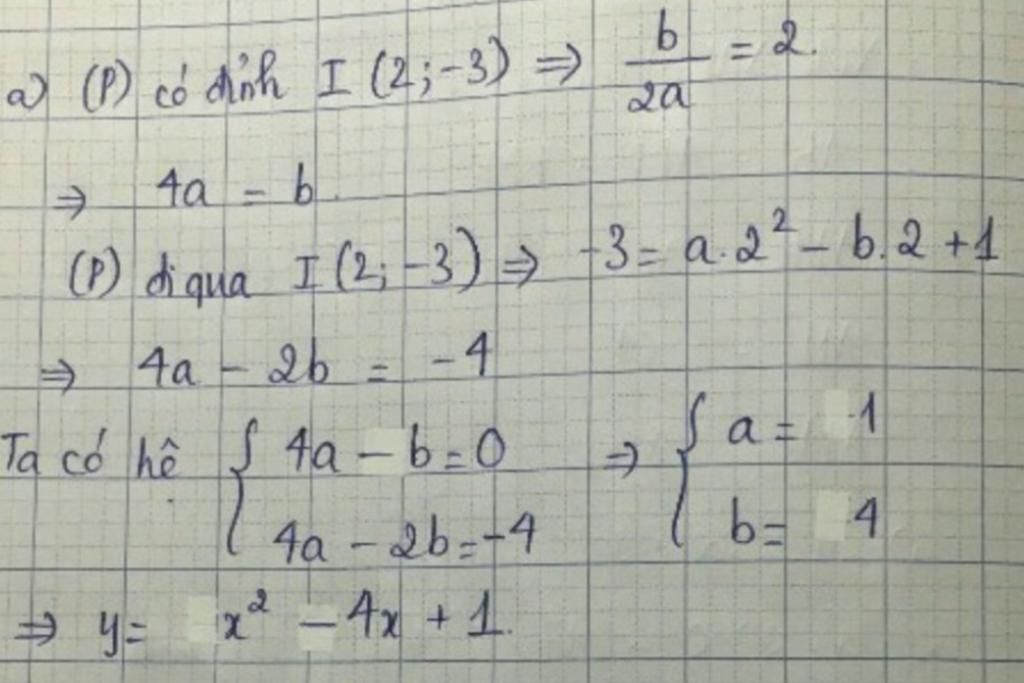 a) (P) có đỉnh I (2;-3) ⇒ b/2a = 2.
⇒ 4a = b.
(P) đi qua I (2;-3) ⇒ -3 = a.2² - b.2 + 1
⇒ 4a - 2b = -4
Ta có hệ { 4a - b = 0 ⇒ { a = 1
4a - 2b = -4 b = 4
⇒ y = x² - 4x + 1.